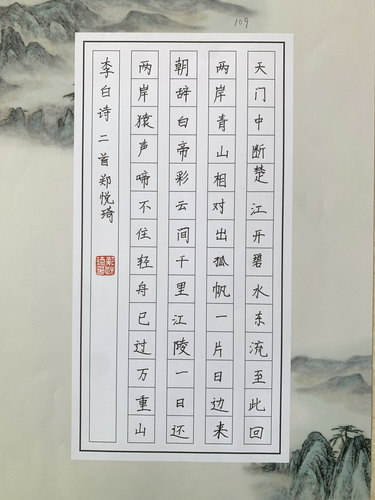 109
天门中断楚江开碧水东流至此回
两岸青山相对出孤帆一片日边来
朝辞白帝彩云间千里江陵一日还
两岸猿声啼不住轻舟已过万重山
李白诗二首郑悦琦